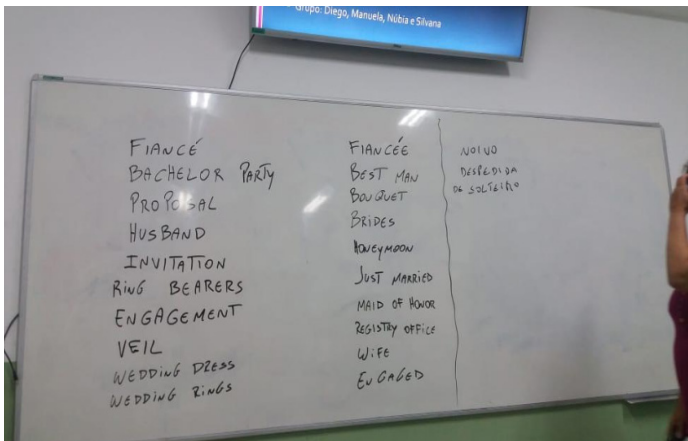 Grupo: Diego, Manuela, Núbia e Silvana
FIANCÉ
BACHELOR PARTY
PROPOSAL
HUSBAND
INVITATION
RING BEARERS
ENGAGEMENT
VEIL
WEDDING DRESS
WEDDING RINGS
FIANCÉE
BEST MAN
BOUQUET
BRIDES
HONEYMOON
JUST MARRIED
MAID OF HONOR
REGISTRY OFFICE
WIFE
ENGAGED
NOIVO
DESPEDIDA
DE SOLTEIRO